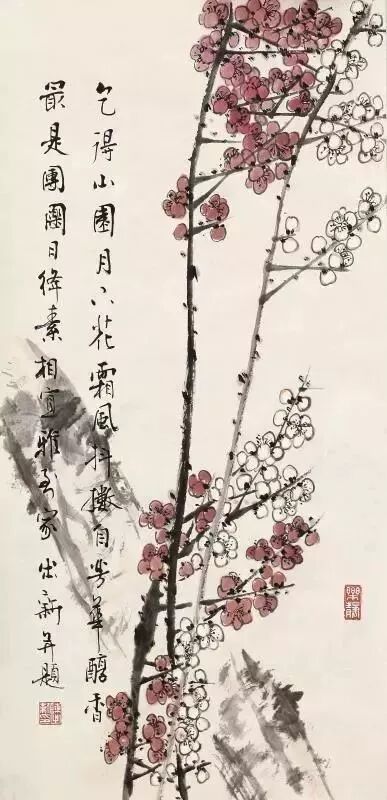 乞得小園月下花霜風抖擻自芳華醇香
最是團圞日絳素相宜雅到家出新并題